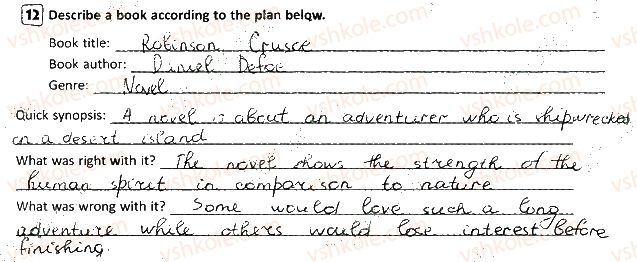 12 Describe a book according to the plan below.
Book title: Robinson Crusoe
Book author: Daniel Defoe
Genre: Novel
Quick synopsis: A novel is about an adventurer who is shipwrecked
on a desert island
What was right with it? The novel shows the strength of the
human spirit in comparison to nature
What was wrong with it? Some would love such a long
adventure while others would lose interest before
finishing.
vshkole.com